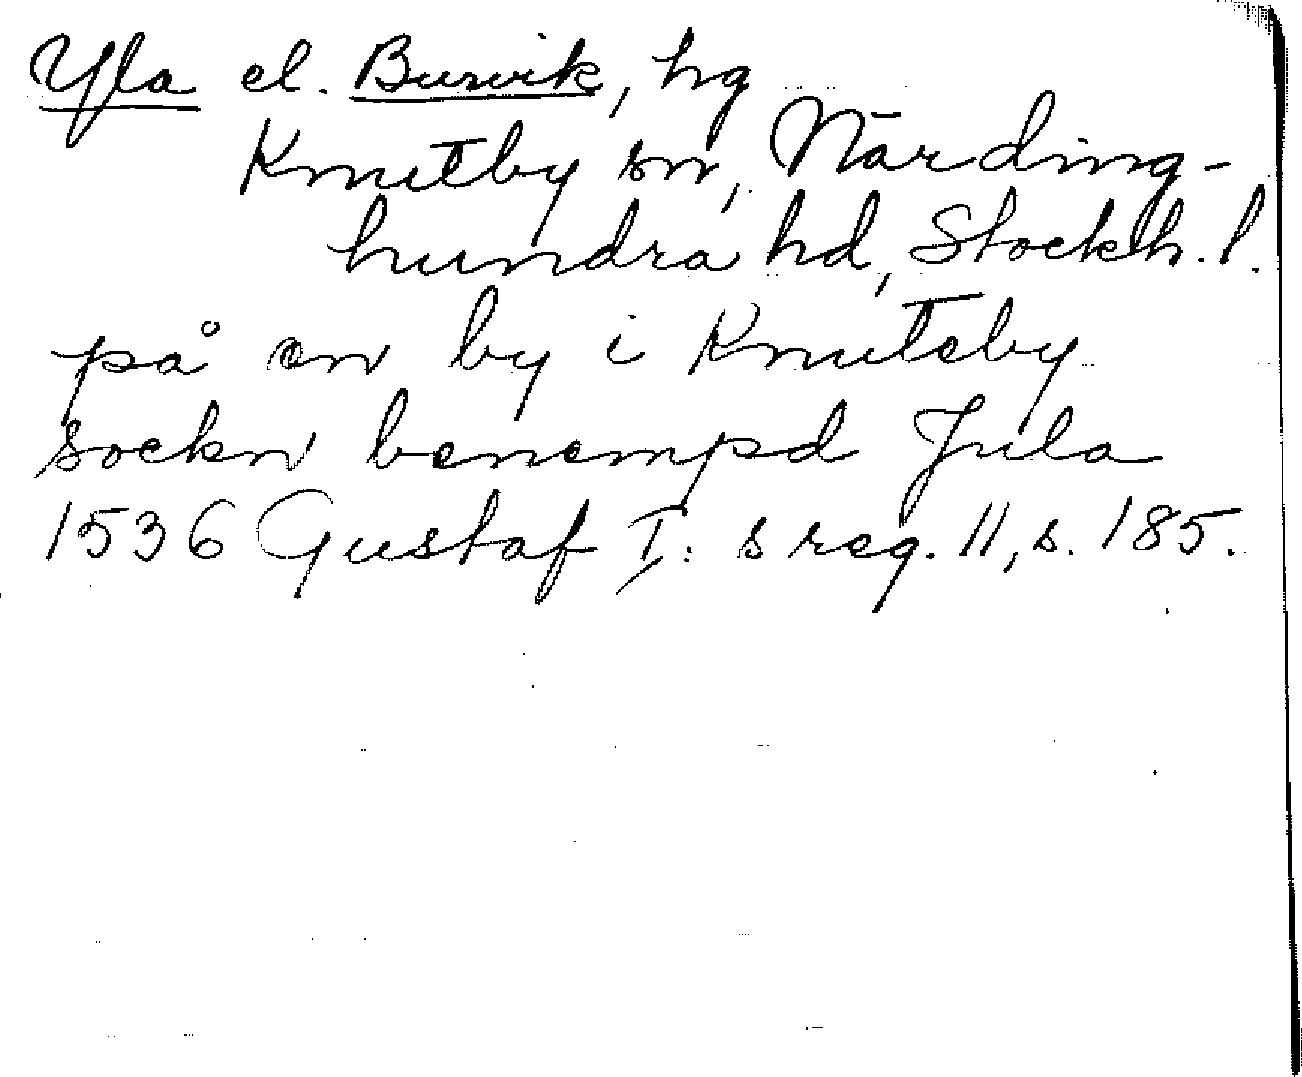 Yla el. Burvik, hg
Knutby sn, Närding-
hundra hd, Stockh. l.
på en by i Knuteby
sockn benempd Jula
1536 Gustaf I: s reg. 11, s. 185.